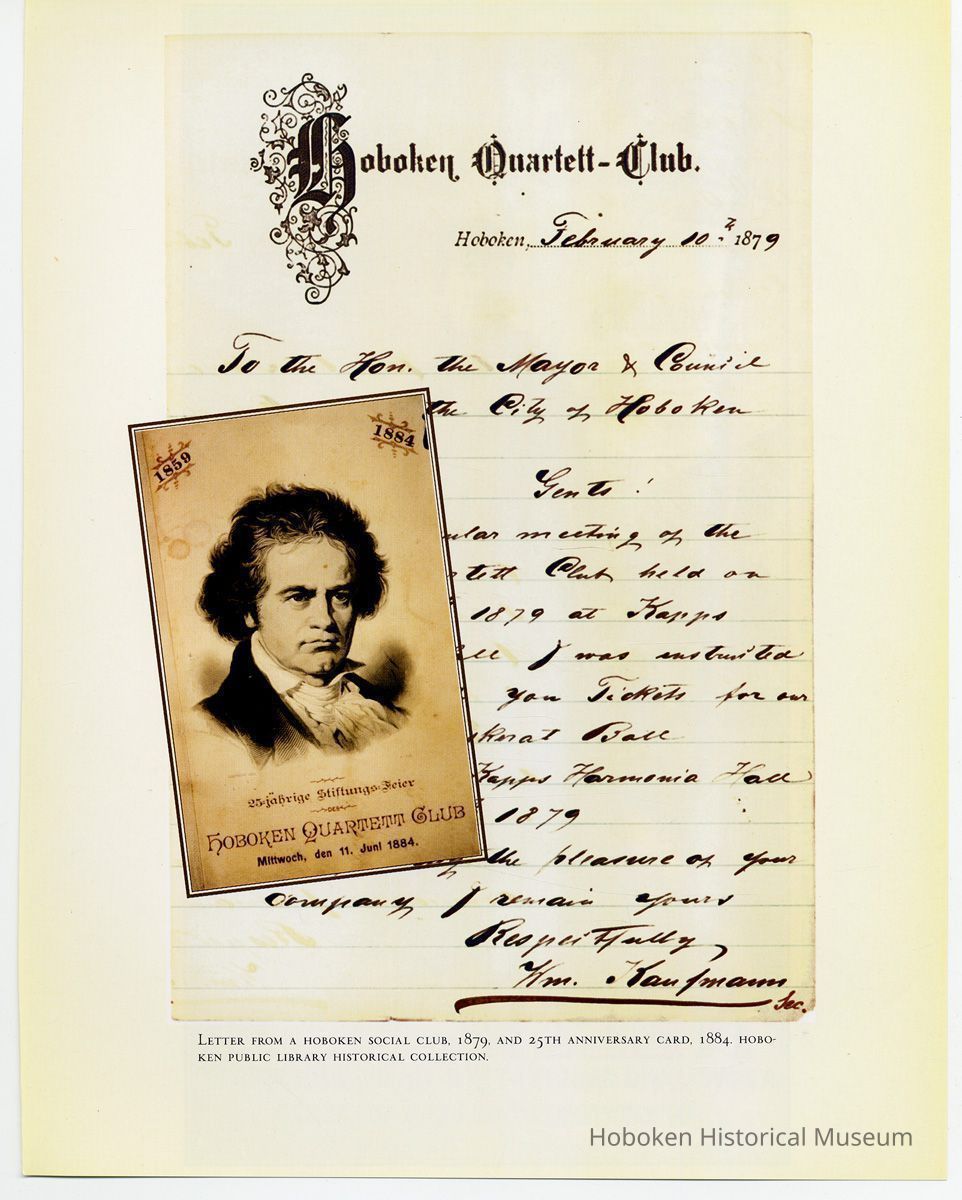 Hoboken Quartett-Club.
Hoboken, February 10th 1879
To the Hon. the Mayor & Council
the City of Hoboken
Gents!
ular meeting of the
rtett Club held on
1879 at Kapps
I was instructed
you Tickets for our
skerat Ball
Kapps Harmonia Hall
1879
the pleasure of your
Company I remain yours
Respectfully,
Wm. Kaufmann
Sec.
1859
1884
25-jährige Stiftungs-Feier
DES
HOBOKEN QUARTETT CLUB
Mittwoch, den 11. Juni 1884.
LETTER FROM A HOBOKEN SOCIAL CLUB, 1879, AND 25TH ANNIVERSARY CARD, 1884. HOBO-
KEN PUBLIC LIBRARY HISTORICAL COLLECTION.
Hoboken Historical Museum